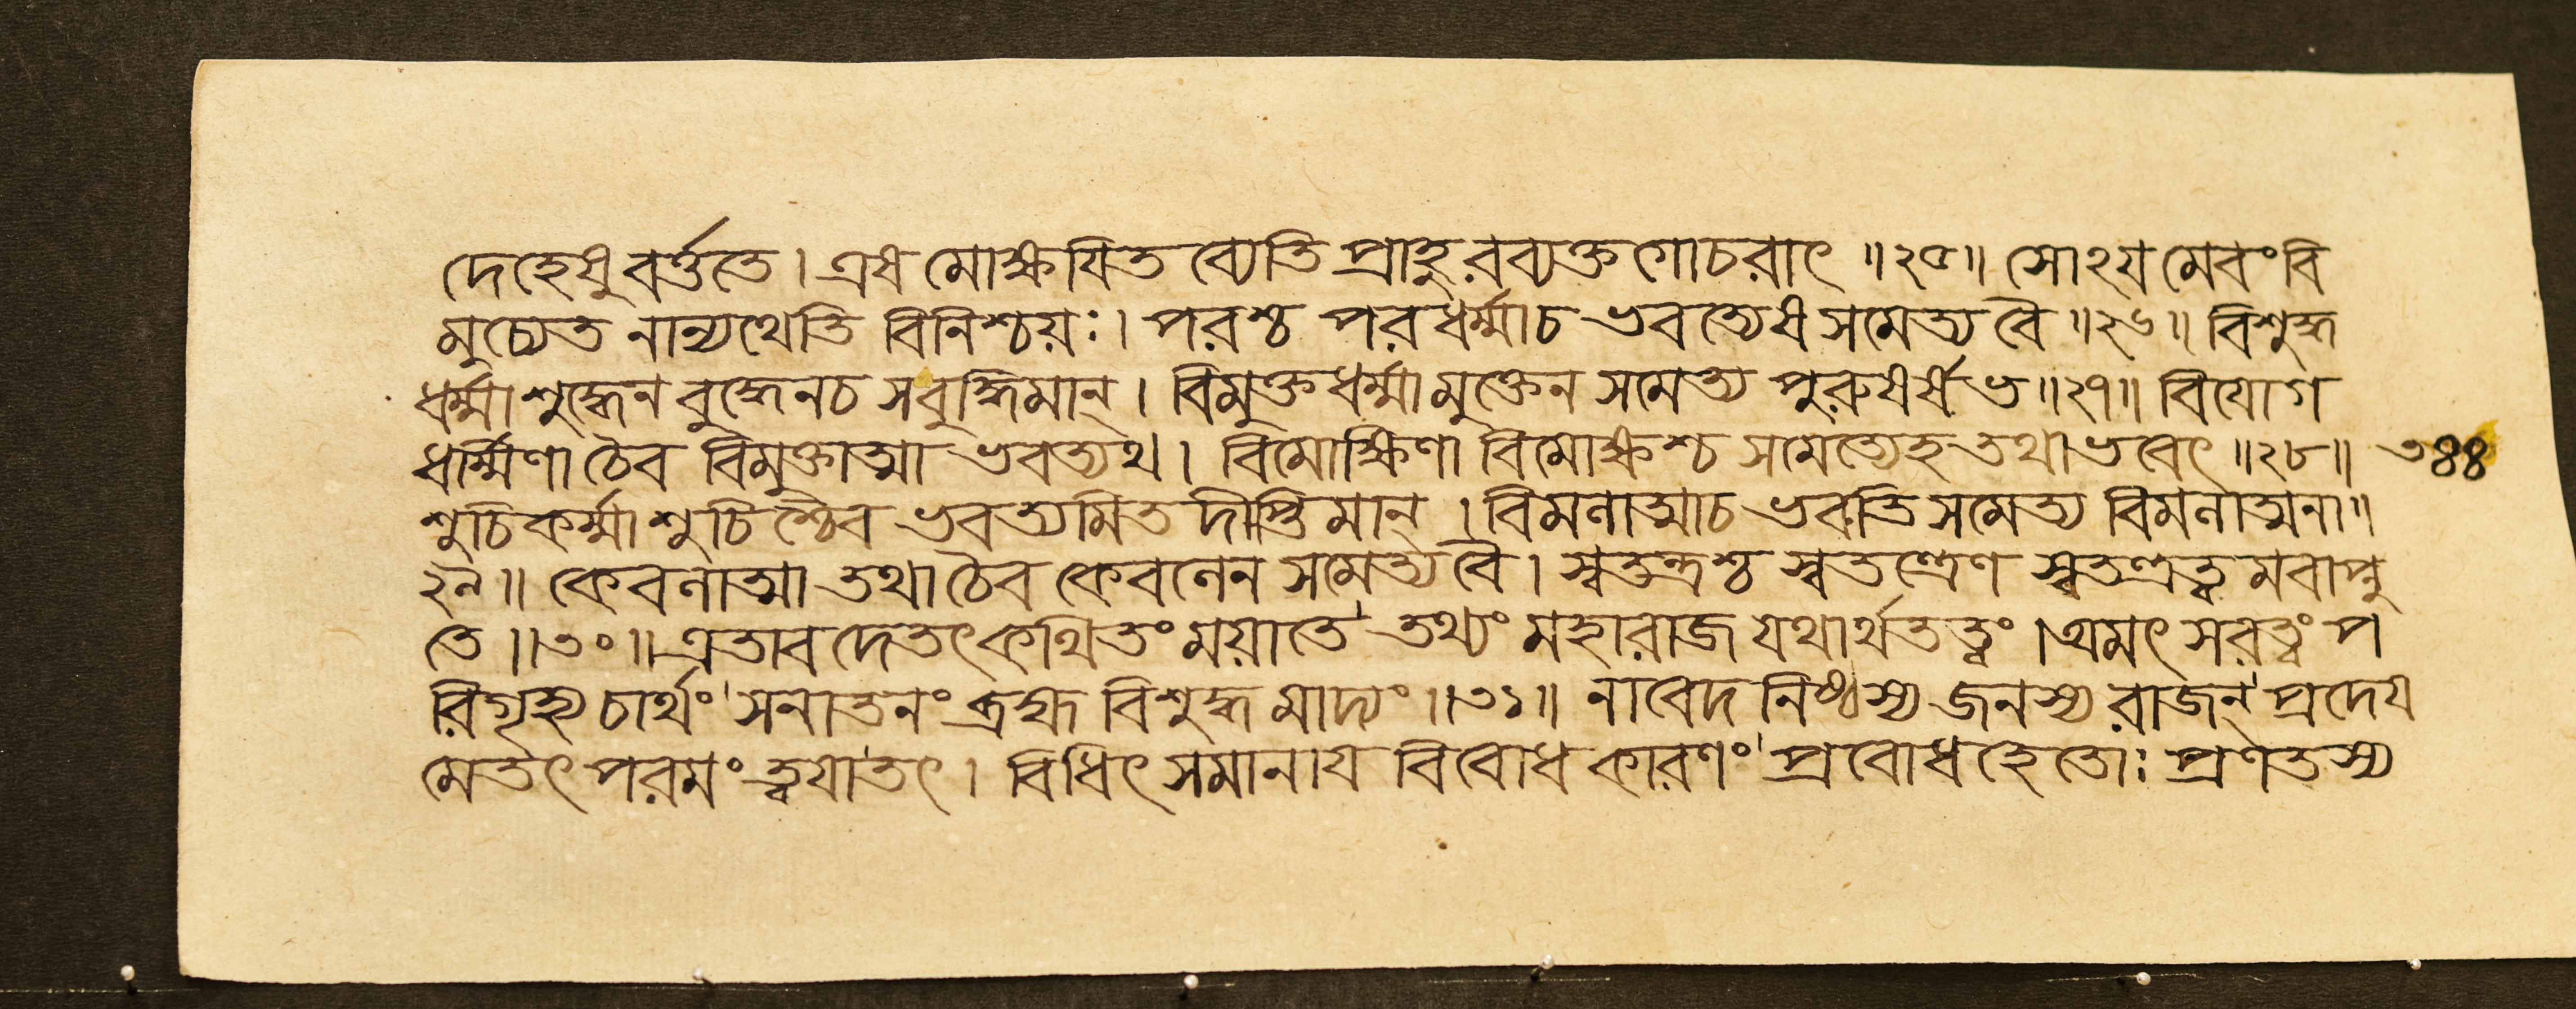 দেহেষু বর্ত্ততে । এষ মোক্ষযিতব্যেতি প্রাহুরব্যক্তগোচরাৎ ॥ ২৫ ॥ সোঽয মেবং বি
মুচ্যেত নান্যথেতি বিনিশ্চয়ঃ । পরশ্চ পরধর্ম্মা চ ভবত্যেষ সমেত্য বৈ ॥ ২৬ ॥ বিশুদ্ধ
ধর্ম্মা শুদ্ধেন বুদ্ধেন চ সবুদ্ধিমান্ । বিমুক্তধর্ম্মা মুক্তেন সমেত্য পুরুষর্ষভ ॥ ২৭ ॥ বিযোগ
ধর্ম্মিণা চৈব বিমুক্তাত্মা ভবত্যথ । বিমোক্ষিণা বিমোক্ষশ্চ সমেত্যেহ তথা ভবেৎ ॥ ২৮ ॥ ৩৪৪
শুচিকর্ম্মা শুচিশ্চৈব ভবত্যমিতদীপ্তিমান্ । বিমলাত্মা চ ভবতি সমেত্য বিমলাত্মনা ॥
২৯ ॥ কেবলাত্মা তথা চৈব কেবলেন সমেত্য বৈ । স্বতন্ত্রশ্চ স্বতন্ত্রেণ স্বতন্ত্রত্বমবাপ্নু
তে ॥ ৩০ ॥ এতাবদেতৎ কথিতং ময়া তে' তথ্যং মহারাজ যথার্থতত্ত্বং । অমৎসরত্বং প
রিগৃহ্য চার্থং' সনাতনং ব্রহ্ম বিশুদ্ধমাদ্যং ॥ ৩১ ॥ নাবেদনিষ্ঠস্য জনস্য রাজন্' প্রদেয
মেতৎ পরমং ত্বযা তৎ । বিধিৎসমানায বিবোধকারণং' প্রবোধহেতোঃ প্রণতস্য